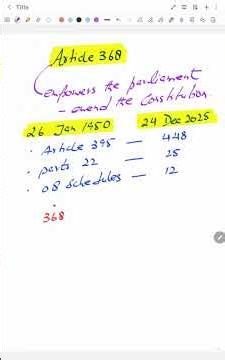 Title
Article 368
empowers the parliament
- amend the Constitution.
26 Jan 1950 24 Dec 2025
· Article 395 — 448
· parts 22 — 25
· 08 Schedules — 12
368